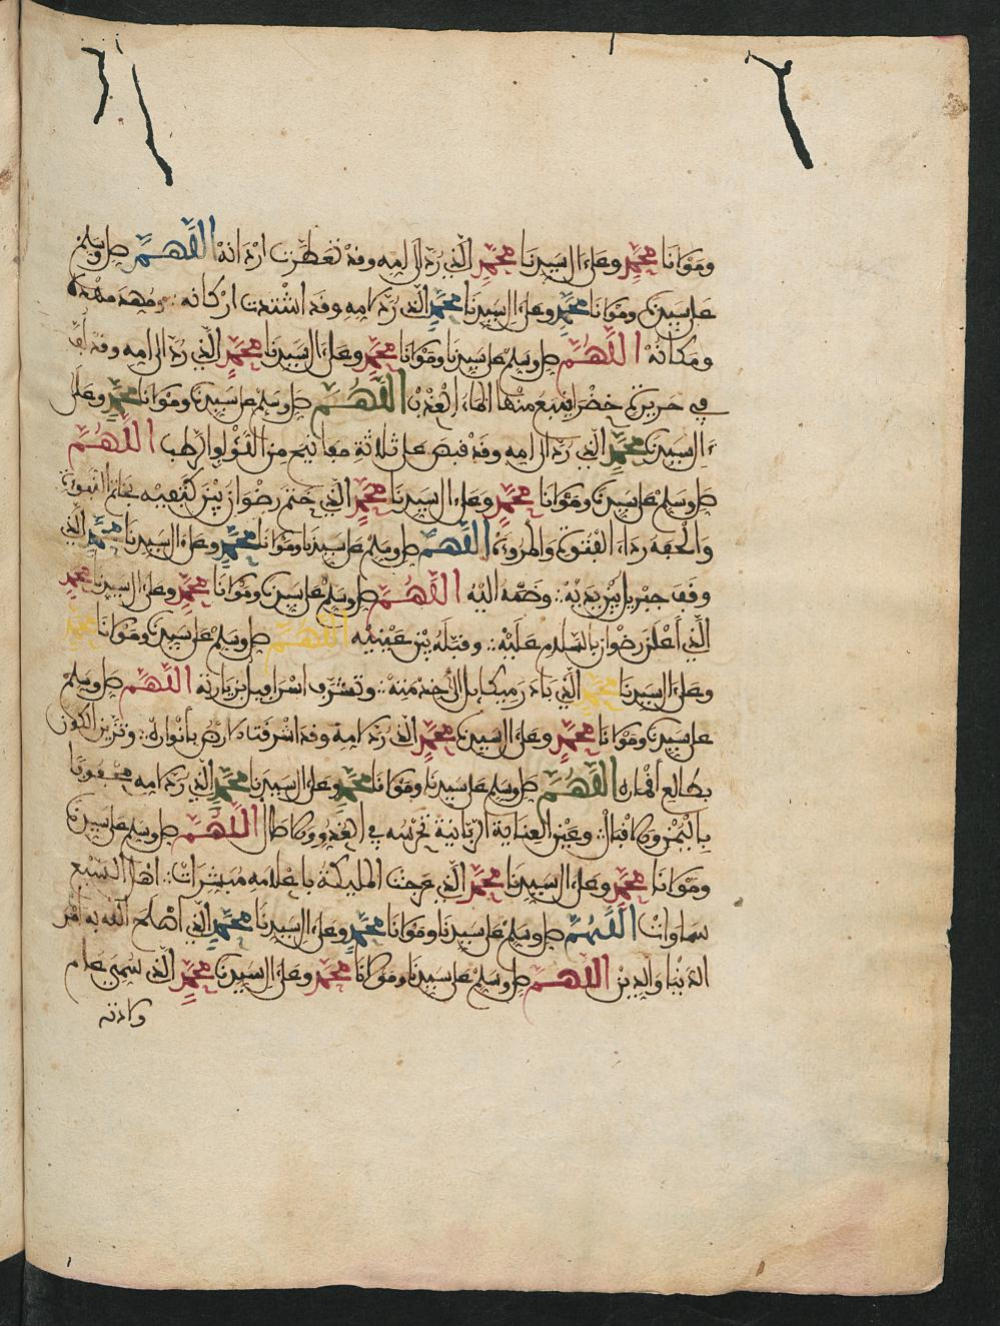 ومولانا محمد وعلى ءال سيدنا محمد الذي رد إلى أمه وقد تعطرت أردانه اللهم صل وسلم
على سيدنا ومولانا محمد وعلى ءال سيدنا محمد الذي رد لأمه وقد اشتدت أركانه ومهد مهده
ومكانه اللهم صل وسلم على سيدنا ومولانا محمد وعلى ءال سيدنا محمد الذي رد إلى أمه وقد
في حريرة خضرا ينبع منها الماء العذب اللهم صل وسلم على سيدنا ومولانا محمد وعلى
ءال سيدنا محمد الذي رد إلى أمه وقد قبض على ثلاثة مفاتيح من اللؤلؤ الرطب اللهم
صل وسلم على سيدنا ومولانا محمد وعلى ءال سيدنا محمد الذي ختم رضوان بين كتفيه بخاتم النبوة
وألحفه رداء الفتوة والمروءة اللهم صل وسلم على سيدنا ومولانا محمد وعلى ءال سيدنا محمد الذي
وقف جبريل بين يديه وضمه إليه اللهم صل وسلم على سيدنا ومولانا محمد وعلى ءال سيدنا محمد
الذي أعلن رضوان بالسلام عليه وقبله بين عينيه اللهم صل وسلم على سيدنا ومولانا محمد
وعلى ءال سيدنا محمد الذي بادر ميكايل إلى خدمته وتشرف إسرافيل بزيارته اللهم صل وسلم
على سيدنا ومولانا محمد وعلى ءال سيدنا محمد الذي رد لأمه وقد أشرقت الأرض بأنواره وتزين الكون
بطالع أقماره اللهم صل وسلم على سيدنا ومولانا محمد وعلى ءال سيدنا محمد الذي رد لأمه محفوفا
باليمن والإقبال وعين العناية الربانية تحرسه في الغدو والأصال اللهم صل وسلم على سيدنا
ومولانا محمد وعلى ءال سيدنا محمد الذي عرجت المليكة بأعلامه مبشرات أهل السبع
سماوات اللهم صل وسلم على سيدنا ومولانا محمد وعلى ءال سيدنا محمد الذي أصلح الله به أمر
الدنيا والدين اللهم صل وسلم على سيدنا ومولانا محمد وعلى ءال سيدنا محمد الذي سمي عام
ولادته